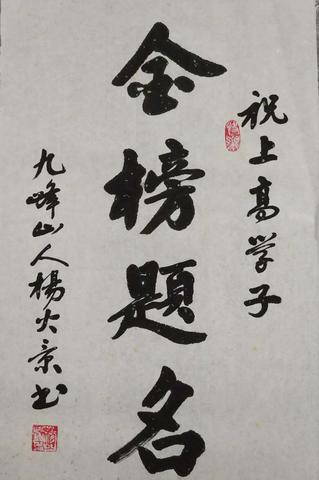 祝上高学子
金榜題名
九峰山人楊火景书